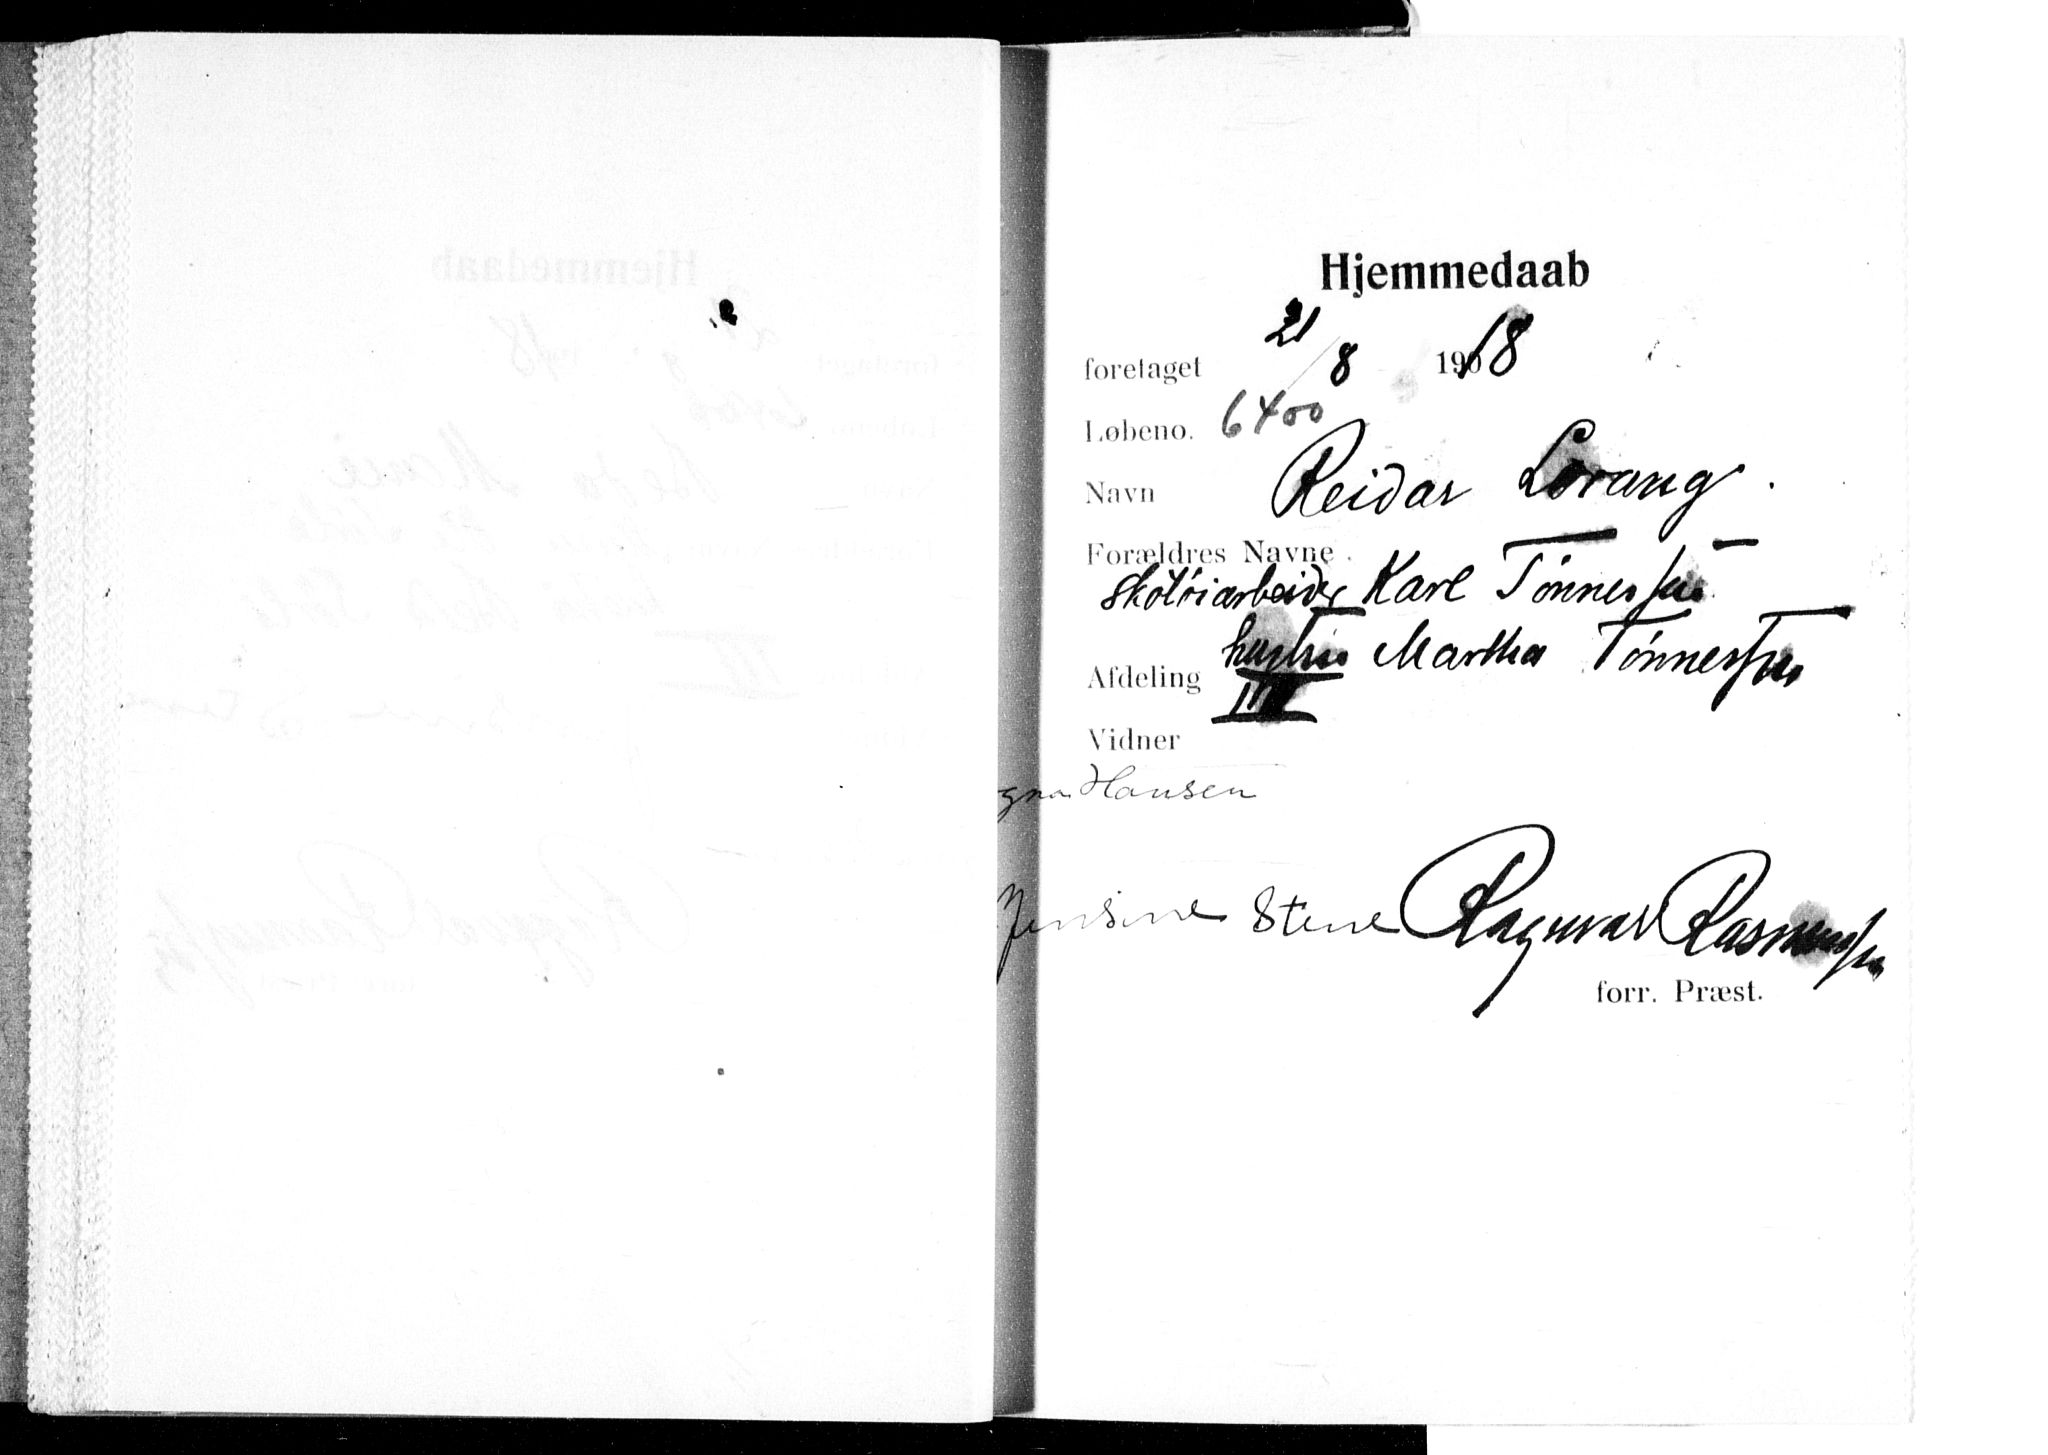 Hjemmedaab
foretaget 21/8 1918
Løbeno. 6400
Navn Reidar Lorang.
Forældres Navne.
Skotøiarbeider Karl Tønnessen
hustru Martha Tønnessen
Afdeling III
Vidner
gna Hansen
Jensine Stene Ragnvald Rasmussen
forr. Præst.